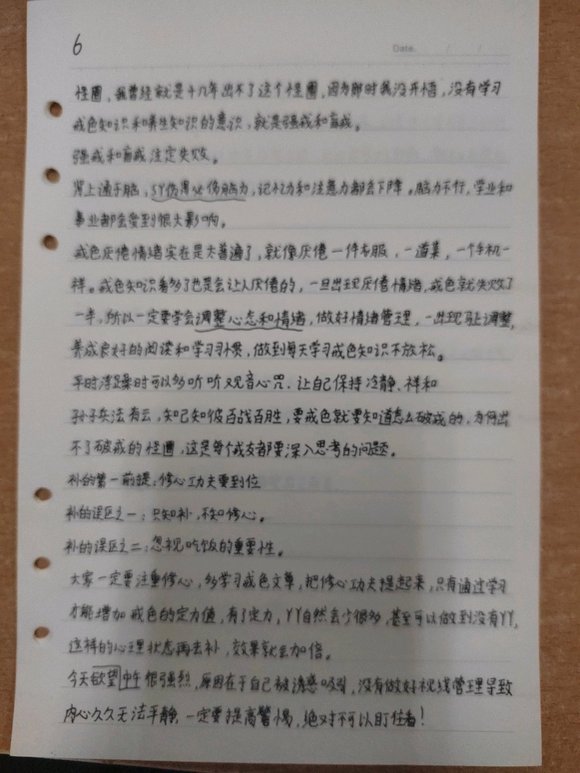 6
Date.
怪圈，我曾经就是十几年出不了这个怪圈，因为那时我没开悟，没有学习
戒色知识和养生知识的意识，就是强戒和盲戒。
强戒和盲戒注定失败。
肾上通于脑，SY伤肾必伤脑力，记忆力和注意力都会下降。脑力不行，学业和
事业都会受到很大影响。
戒色厌倦情绪实在是太普遍了，就像厌倦一件衣服，一道菜，一个手机一
样。戒色知识看多了也是会让人厌倦的，一旦出现厌倦情绪，戒色就失败了
一半，所以一定要学会调整心态和情绪，做好情绪管理，一出现马上调整，
养成良好的阅读和学习习惯，做到每天学习戒色知识不放松。
平时浮躁时可以多听听观音心咒，让自己保持冷静、祥和
孙子兵法有云，知己知彼百战百胜，要戒色就要知道怎么破戒的，为何出
不了破戒的怪圈，这是每个戒友都要深入思考的问题。
补的第一前提：修心功夫要到位
补的误区之一：只知补，不知修心。
补的误区之二：忽视吃饭的重要性。
大家一定要注重修心，多学习戒色文章，把修心功夫提起来，只有通过学习
才能增加戒色的定力值，有了定力，YY自然会少很多，甚至可以做到没有YY，
这样的心理状态再去补，效果就会加倍。
今天欲望中午很强烈，原因在于自己被诱惑吸引，没有做好视线管理导致
内心久久无法平静，一定要提高警惕，绝对不可以盯住看！